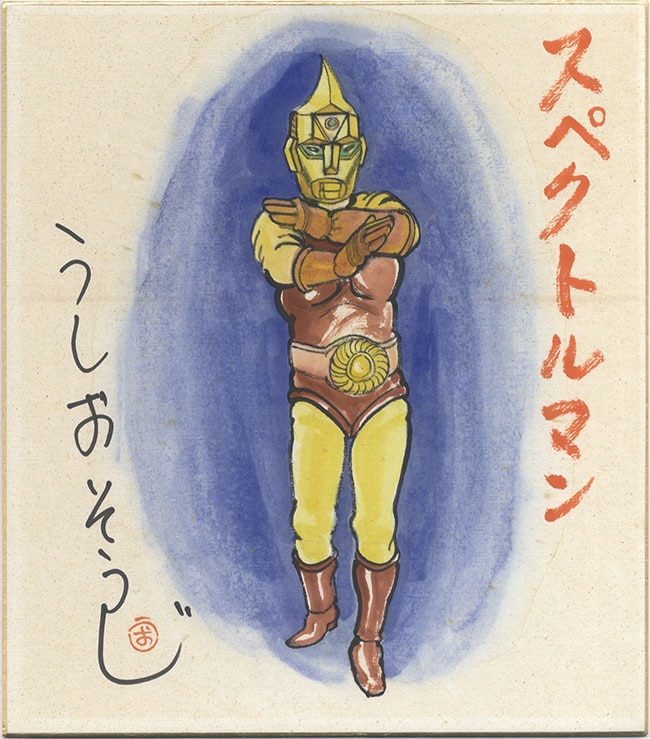 スペクトルマン
うしおそうじ
お